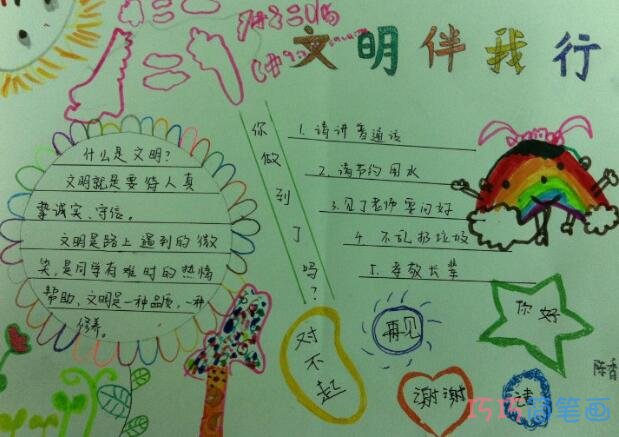 文明伴我行
什么是文明?
文明就是要待人真
挚诚实、守信。
文明是路上遇到的微
笑,是同学有难时的热情
帮助,文明是一种品质,一种
修养。
你做到了吗?
1. 请讲普通话
2. 请节约用水
3. 见了老师要问好
4. 不乱扔垃圾
5. 孝敬长辈
对不起
再见
你好
谢谢
请
陈香
巧巧简笔画